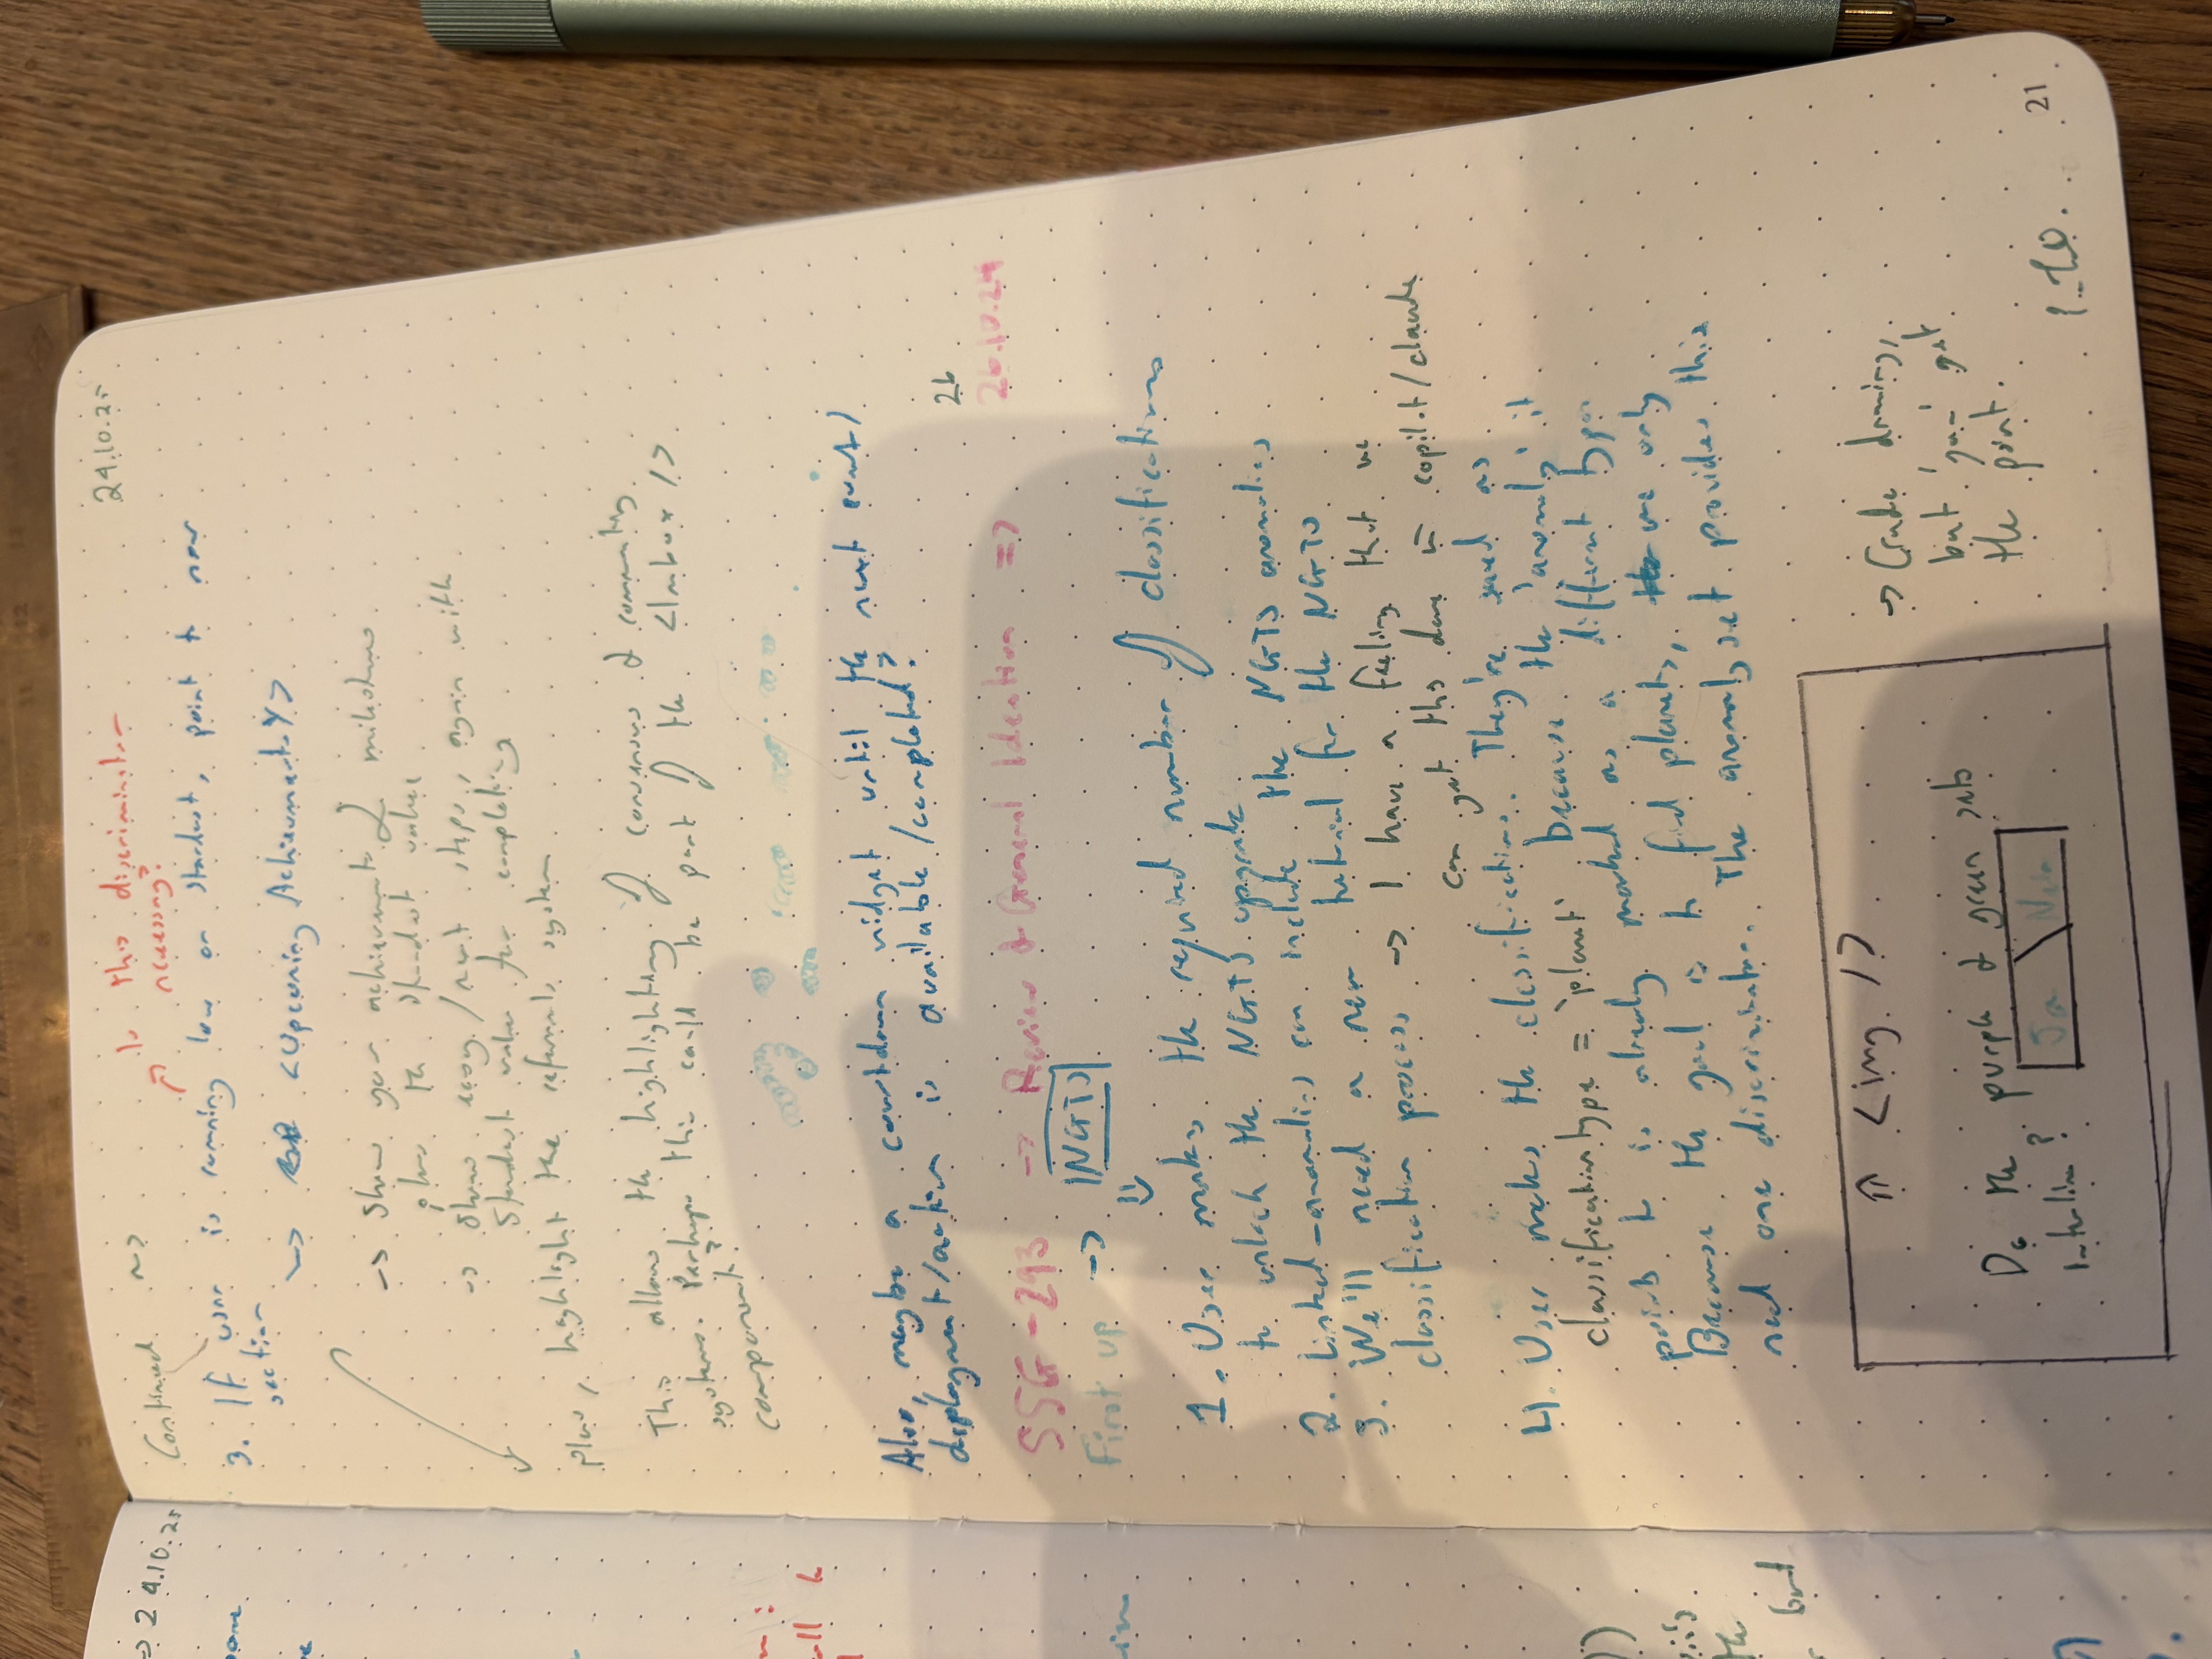 Continued ~> 24.10.25
↗ Is this discriminator
necessary?
3. If user is running low on stardust, point to new
section
↳ <UpcomingAchievements/>
-> Show your achievement & milestone
plus the stardust value
-> Show easy/next steps, again with
Stardust value for completing
plus, highlight the referrals system
This allows the highlighting of consensus & community
systems. Perhaps this could be part of the <Inbox />
component.
Also, maybe a countdown widget until the next event/
deployment/action is available/completed?
26
SSG-293 -> Review & General Ideation => 26.10.24
First up -> |NGTS|
⇓
1. User makes the required number of classifications
to unlock the NGTS upgrade
2. linked-anomalies can include the NGTS anomalies
3. We'll need a new tutorial for the NGTS
classification process -> I have a feeling that we
can get this done w copilot/claude
4. User makes the classification. They're saved as
classificationtype = 'planet' because the 'anomaly' it
points to is already marked as a different type
Because the goal is to find planets, we only
need one discriminator. The anomaly set provides this
⇑ <img />
Do the purple & green dots
intertwine?
Yes / No
-> Crude drawing,
but you get
the point.
P.T.O.
21
=> 24.10.25
but